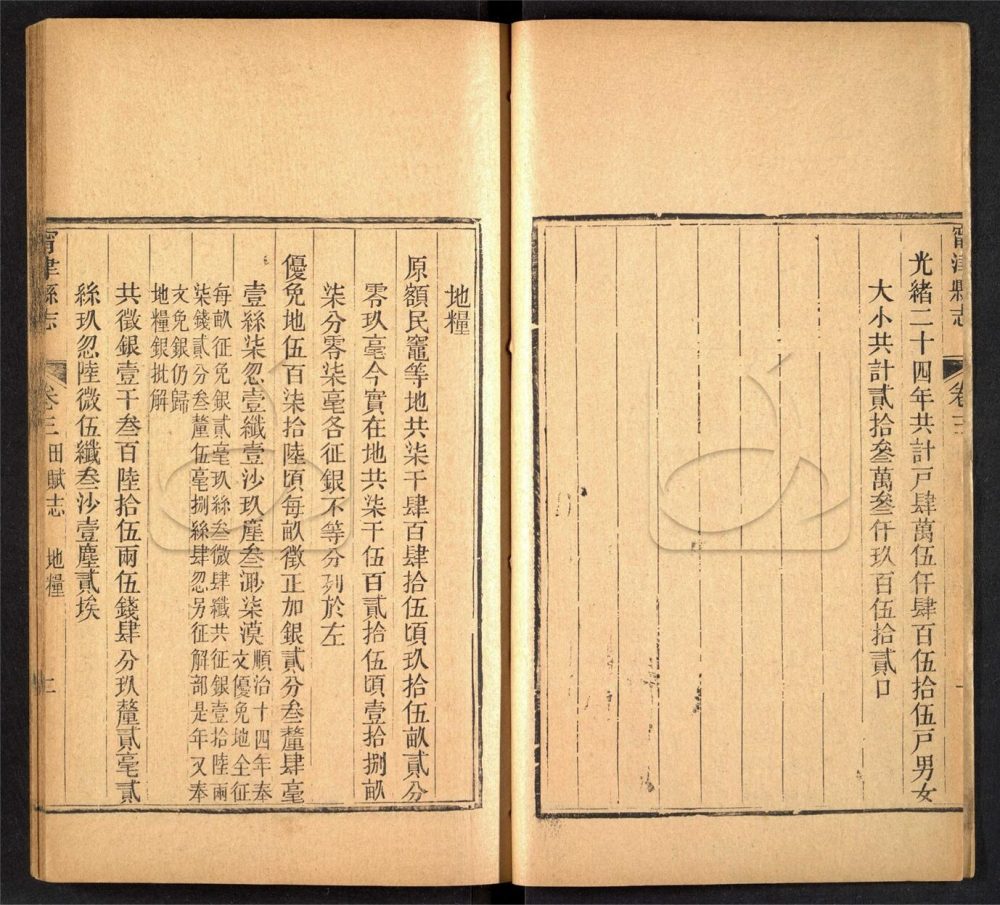 甯津縣志
卷三
一
光緒二十四年共計戸肆萬伍仟肆百伍拾伍戸男女
大小共計貳拾叄萬叄仟玖百伍拾貳口
地糧
原額民竈等地共柒千肆百肆拾伍頃玖拾伍畝貳分
零玖毫今實在地共柒千伍百貳拾伍頃壹拾捌畝
柒分零柒毫各征銀不等分列於左
優免地伍百柒拾陸頃每畝徵正加銀貳分叁釐肆毫
壹絲柒忽壹纖壹沙玖塵叁渺柒漠順治十四年奉
文優免地全征
每畝征免銀貳毫玖絲叁微肆纖共征銀壹拾陸兩
柒錢貳分叁釐伍毫捌絲肆忽另征解部是年又奉
文免銀仍歸
地糧銀批解
共徵銀壹千叁百陸拾伍兩伍錢肆分玖釐貳毫貳
絲玖忽陸微伍纖叁沙壹塵貳埃
甯津縣志
卷三田賦志
地糧
二